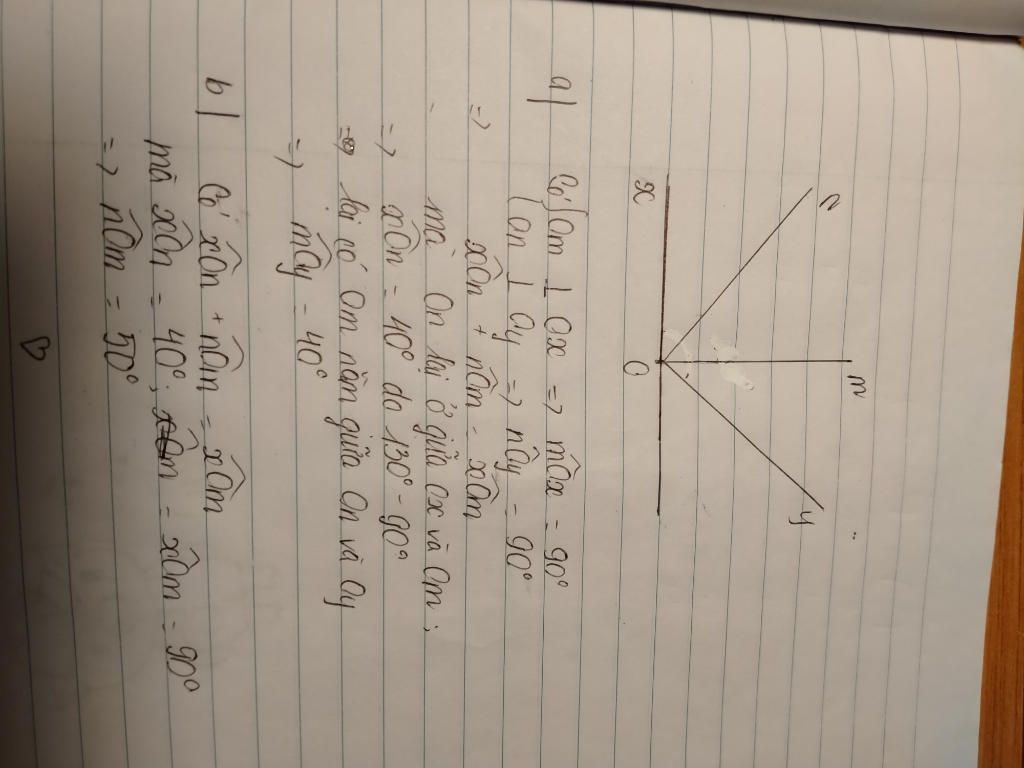 n
m
y
x
O
a| Có { Om ⊥ Ox => mÔx = 90°
On ⊥ Oy => nÔy = 90°
=> xÔn + nÔm = xÔm
mà On lại ở giữa Ox và Om ;
=> xÔn = 40° do 130° - 90°
=> lại có Om nằm giữa On và Oy
=> mÔy = 40°
b| Có xÔn + nÔm = xÔm
mà xÔn = 40° ; xÔm = 90°
=> nÔm = 50°